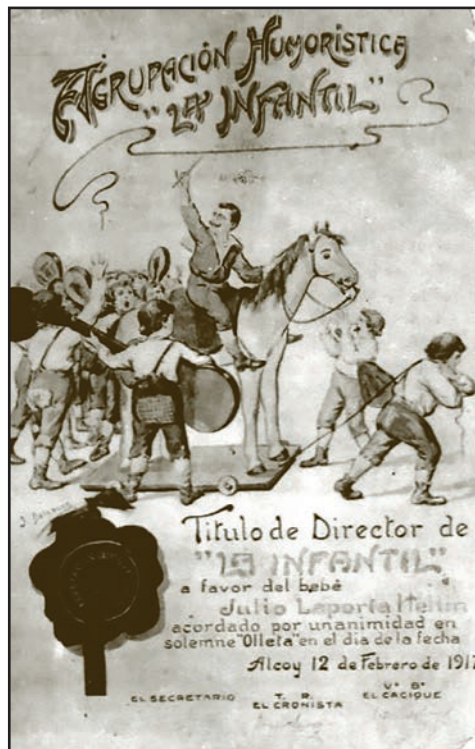 AGRUPACIÓN HUMORÍSTICA
"LA INFANTIL"
Titulo de Director de
"LA INFANTIL"
a favor del bebé
Julio Laporta Hellin
acordado por unanimidad en
solemne "Olleta" en el dia de la fecha
Alcoy 12 de Febrero de 191
EL SECRETARIO T. R. Vº Bº
EL CRONISTA EL CACIQUE